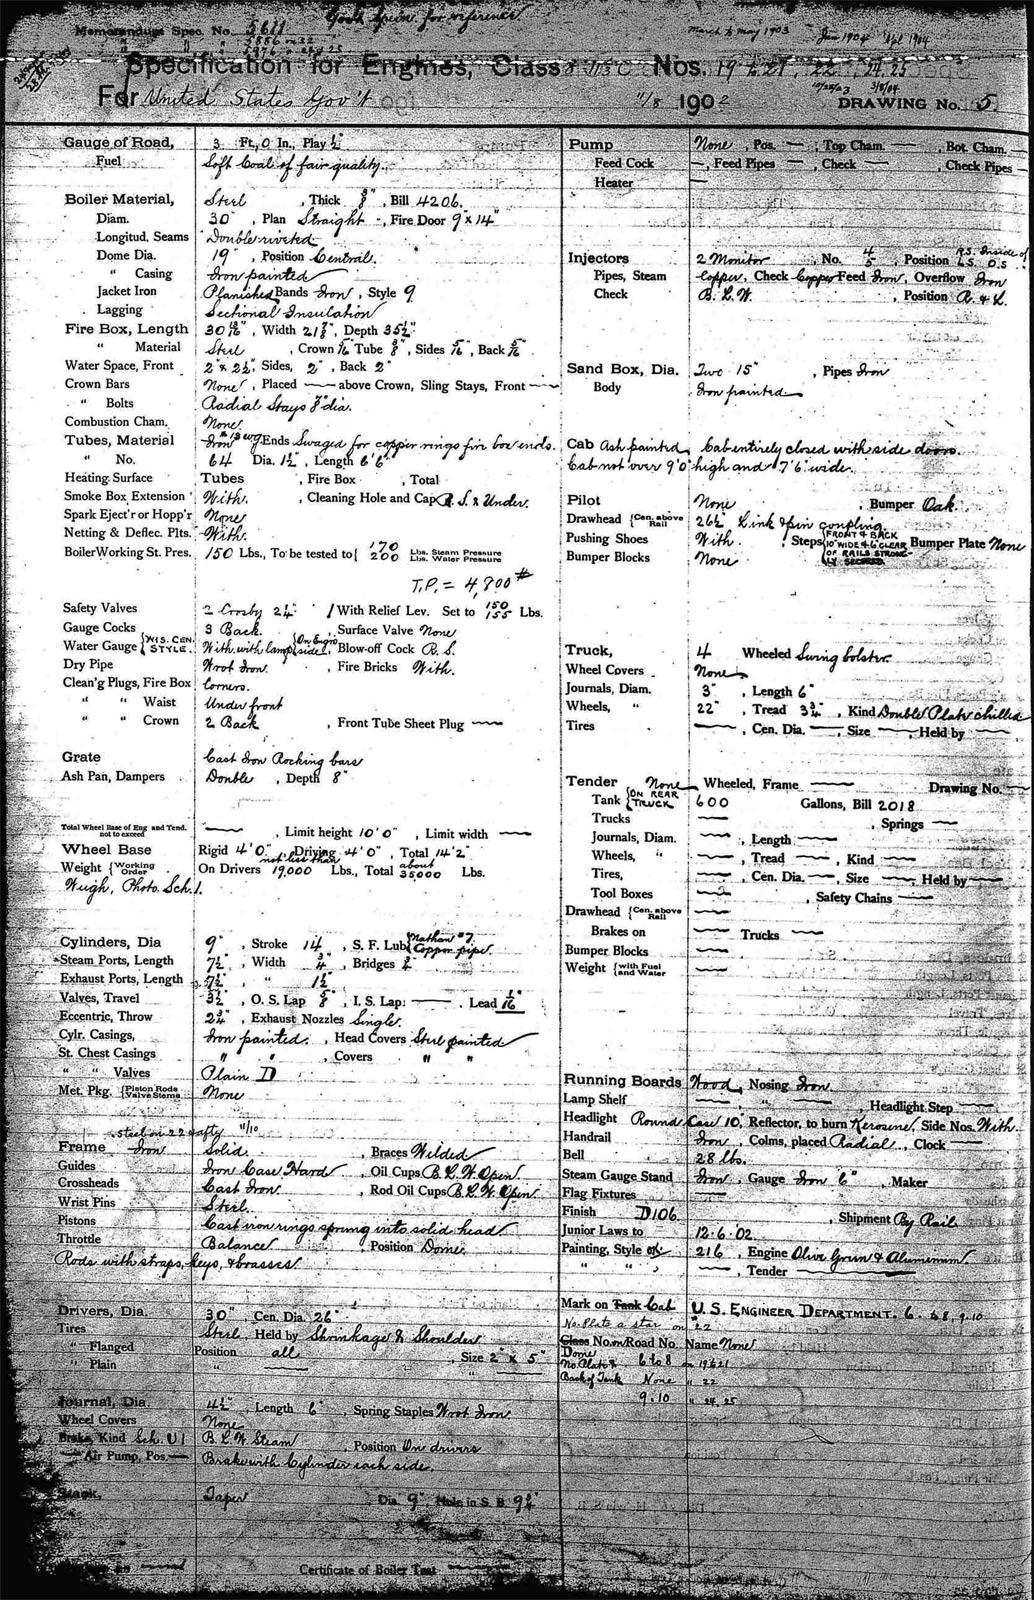 Memorandum Spec. No. 5611
Goods Specn. for reference
March & May 1903 Jan 1904 Apl 1904
Specification for Engines, Class 8 11⅓ C Nos. 19 to 21, 22, 24, 25
For United States Gov't 11/8 1902 DRAWING No. 5
Gauge of Road, 3 Ft., 0 In., Play ½"
Fuel Soft Coal of fair quality.
Boiler Material, Steel, Thick ⅜", Bill 4206.
Diam. 30", Plan Straight, Fire Door 9" x 14"
Longitud. Seams Double riveted
Dome Dia. 19", Position Central.
" Casing Iron painted
Jacket Iron Planished Bands Iron, Style 9
Lagging Sectional Insulation
Fire Box, Length 30 3/16", Width 21⅞", Depth 35½"
" Material Steel, Crown 5/16 Tube ⅜", Sides 5/16, Back 5/16
Water Space, Front 2" & 2½", Sides, 2", Back 2"
Crown Bars None, Placed — above Crown, Sling Stays, Front —
" Bolts Radial Stays ⅞" dia.
Combustion Cham. None
Tubes, Material Iron #13 wg, Ends Swaged for copper rings fire box ends.
" No. 64 Dia. 1½", Length 6'6"
Heating Surface Tubes , Fire Box , Total
Smoke Box Extension With. , Cleaning Hole and Cap R. S. & Under.
Spark Eject'r or Hopp'r None
Netting & Deflec. Plts. With.
Boiler Working St. Pres. 150 Lbs., To be tested to { 170 Lbs. Steam Pressure
200 Lbs. Water Pressure
T.P. = 4,800#
Safety Valves 2 Crosby 2¼" / With Relief Lev. Set to 150 155 Lbs.
Gauge Cocks 3 Back. , Surface Valve None
Water Gauge { WIS. CEN. STYLE. With, with lamp { On Engrs side } Blow-off Cock R. S.
Dry Pipe Wrot Iron. , Fire Bricks With.
Clean'g Plugs, Fire Box Corners.
" " Waist Under front
" " Crown 2 Back , Front Tube Sheet Plug —
Grate Cast Iron Rocking bars
Ash Pan, Dampers Double , Depth 8"
Total Wheel Base of Eng and Tend. not to exceed — , Limit height 10'0" , Limit width —
Wheel Base Rigid 4'0", Driving 4'0", Total 14'2"
Weight { Working Order On Drivers not less than 19,000 Lbs., Total about 35,000 Lbs.
Weigh, Photo. Sch. 1.
Cylinders, Dia 9", Stroke 14", S. F. Lub { Nathan #7. Copper pipe.
Steam Ports, Length 7½", Width ¾", Bridges
Exhaust Ports, Length 7½", " 1½"
Valves, Travel 3½", O. S. Lap ⅝", I. S. Lap: — . Lead 1/16"
Eccentric, Throw 2¾", Exhaust Nozzles Single.
Cylr. Casings, Iron painted. , Head Covers Steel painted
St. Chest Casings " " , Covers " "
" " Valves Plain D
Met. Pkg. { Piston Rods Valve Stems None
Steel on 22 11/10
Frame Iron Solid. , Braces Welded
Guides Iron Case Hard , Oil Cups B. L. W. Open.
Crossheads Cast Iron. , Rod Oil Cups B. L. W. Open
Wrist Pins Steel.
Pistons Cast iron rings sprung into solid head
Throttle Balance , Position Dome.
Rods with straps, keys, & brasses
Drivers, Dia. 30" Cen. Dia. 26"
Tires Steel, Held by Shrinkage & Shoulder
" Flanged Position all
" Plain " — , Size 2" x 5"
Journal, Dia. 4½", Length 6", Spring Staples Wrot Iron
Wheel Covers None
Brake, Kind Sch. U1 B. L. W. Steam , Position On drivers
Air Pump, Pos. — Brake with Cylinder each side.
Stack, Taper Dia 9" Hole in S. B. 9¾"
Certificate of Boiler Test —
Pump None, Pos. — , Top Cham. — , Bot. Cham. —
Feed Cock — , Feed Pipes — , Check — , Check Pipes —
Heater —
Injectors 2 Monitor , No. 4 5 , Position R.S. Inside of L.S. O.S
Pipes, Steam Copper, Check Copper Feed Iron, Overflow Iron
Check B. L. W. , Position R. & L.
Sand Box, Dia. Two 15" , Pipes Iron
Body Iron painted
Cab Ash painted Cab entirely closed with side doors.
Cab not over 9'0" high and 7'6" wide.
Pilot None , Bumper Oak.
Drawhead { Cen. above Rail 26½" Link & pin coupling.
Pushing Shoes With. , Steps { FRONT & BACK 10" WIDE & 6" CLEAR OF RAILS STRONGLY SECURED. Bumper Plate None
Bumper Blocks None
Truck, 4 Wheeled Swing bolster.
Wheel Covers None
Journals, Diam. 3" , Length 6"
Wheels, " 22" , Tread 3¾" , Kind Double Plate chilled
Tires — , Cen. Dia. — , Size — , Held by —
Tender None Wheeled, Frame — Drawing No. —
Tank { ON REAR TRUCK 600 Gallons, Bill 2018
Trucks — , Springs —
Journals, Diam. — , Length —
Wheels, " — , Tread — , Kind —
Tires, — , Cen. Dia. — , Size — , Held by —
Tool Boxes — , Safety Chains —
Drawhead { Cen. above Rail —
Brakes on — Trucks —
Bumper Blocks —
Weight { with Fuel and Water —
Running Boards Wood, Nosing Iron.
Lamp Shelf — " — , Headlight Step —
Headlight Round Case 10", Reflector, to burn Kerosene, Side Nos. With
Handrail Iron, Colms, placed Radial, Clock —
Bell 28 lbs.
Steam Gauge Stand Iron, Gauge Iron 6" , Maker
Flag Fixtures —
Finish D106 , Shipment By Rail
Junior Laws to 12.6.02
Painting, Style 216 , Engine Olive Green & Aluminum.
" " — , Tender —
Mark on Tank Cab U. S. ENGINEER DEPARTMENT. 6. to 8, 9.10
No. Plate a star on 22
Class No. on Road No. Name None
Dome
No. Plate & 6 to 8 on 19 to 21
Back of Tank None " 22
9.10 " 24.25